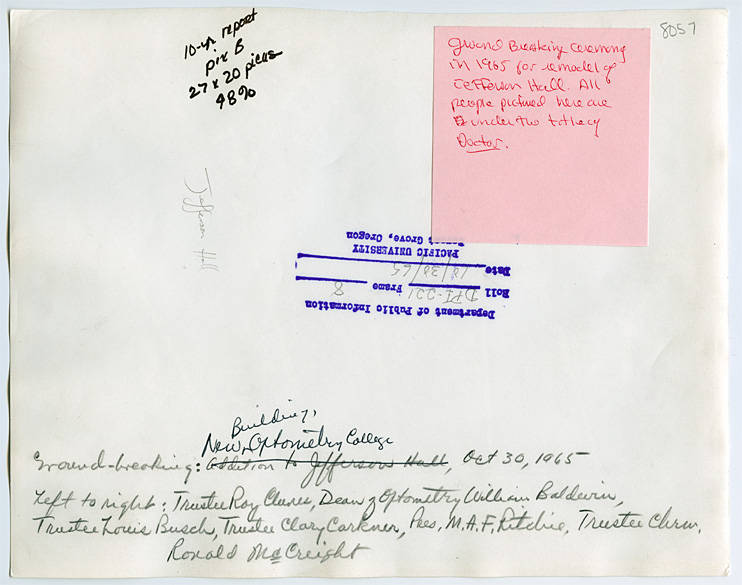 10-yr report
pix B
27 x 20 picas
48%
8057
Ground Breaking Ceremony
in 1965 for remodel of
Jefferson Hall. All
people pictured here are
under the
Doctor.
Jefferson Hall
Department of Public Information
Roll DPI-221 Frame 8
Date 10/30/65
PACIFIC UNIVERSITY
Forest Grove, Oregon
Building,
New Optometry College
Ground-breaking: addition to Jefferson Hall, Oct 30, 1965
Left to right: Trustee Roy Clunes, Dean of Optometry William Baldwin,
Trustee Louis Busch, Trustee Clary Carkner, Pres. M.A.F. Ritchie, Trustee Chrm.
Ronald McCreight